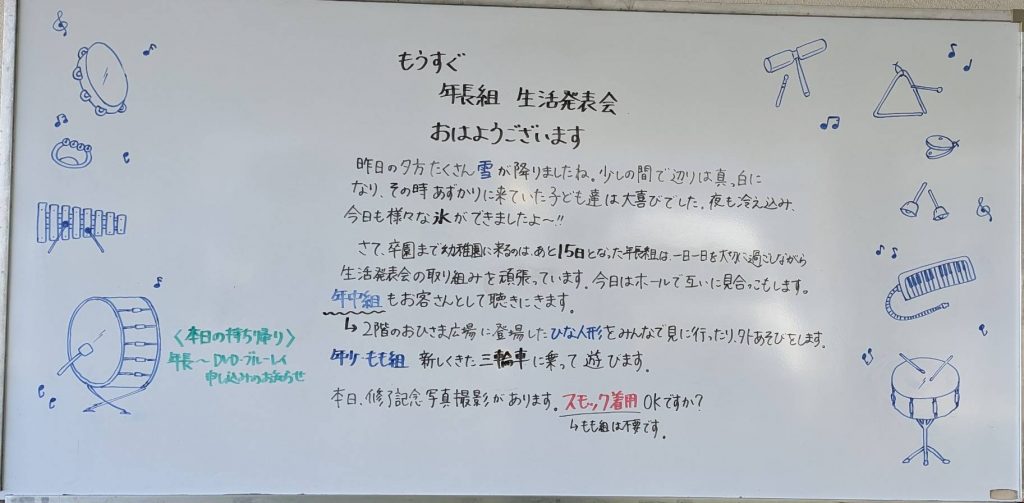 もうすぐ
年長組 生活発表会
おはようございます
昨日の夕方たくさん雪が降りましたね。少しの間で辺りは真っ白に
なり、その時あずかりに来ていた子ども達は大喜びでした。夜も冷え込み、
今日も様々な氷ができましたよ〜!!
さて、卒園まで幼稚園に来るのは、あと15日となった年長組は、一日一日を大切に過ごしながら
生活発表会の取り組みを頑張っています。今日はホールで互いに見合っこもします。
年中組もお客さんとして聴きにきます。
↳2階のおひさま広場に登場したひな人形をみんなで見に行ったり、外あそびをします。
年少・もも組 新しくきた三輪車に乗って遊びます。
本日、修了記念写真撮影があります。スモック着用OKですか?
↳もも組は不要です。
〈本日の持ち帰り〉
年長〜DVD・ブルーレイ
申し込みのお知らせ